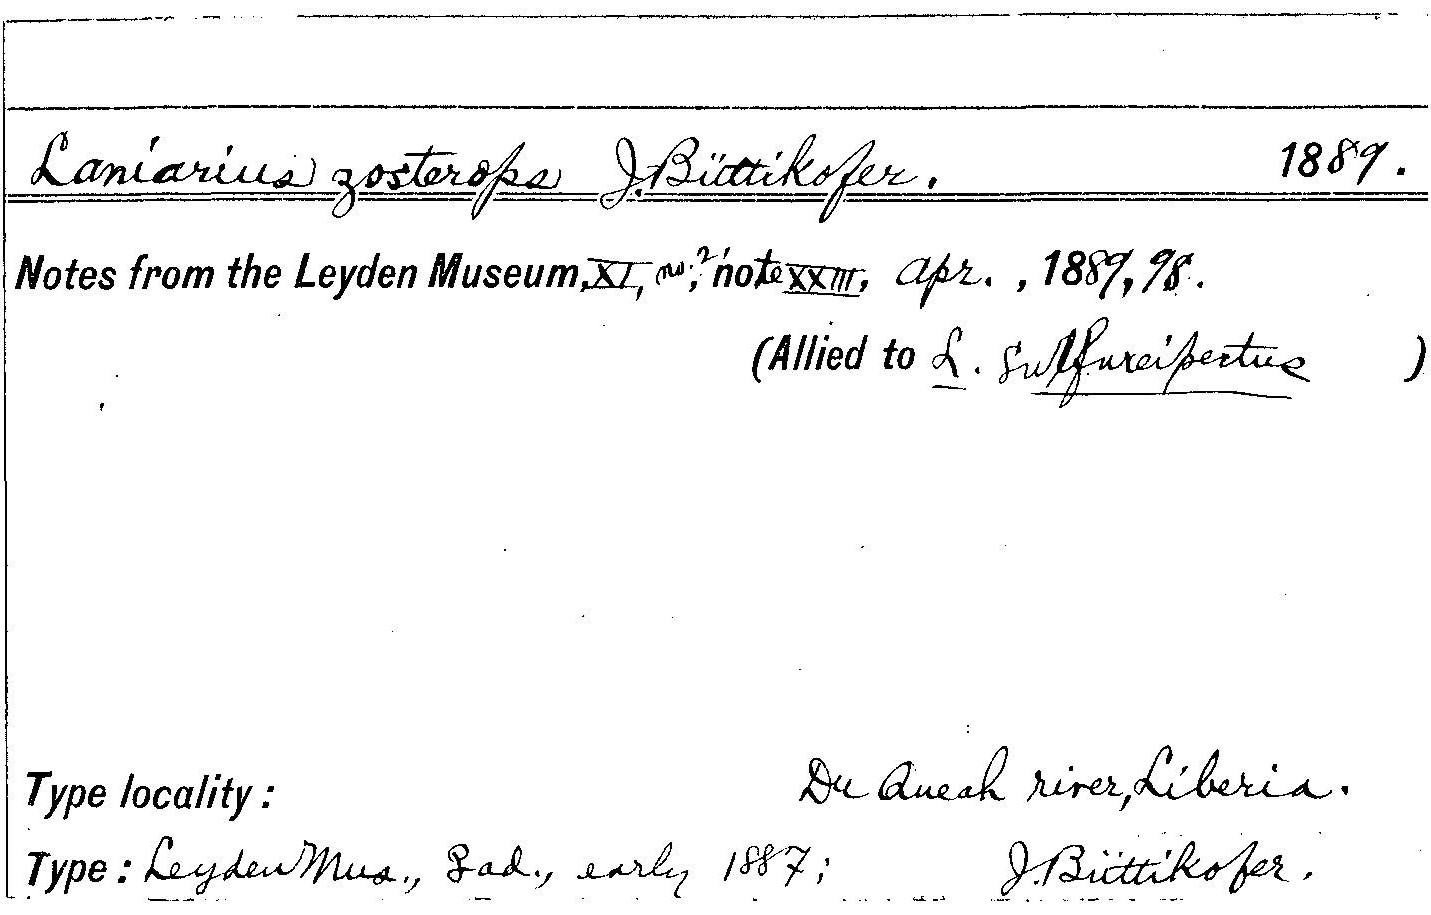 Laniarius zosterops J. Büttikofer. 1889.
Notes from the Leyden Museum, XI, no. 2, note XXIII, apr., 1889, 98.
(Allied to L. sulfureipectus )
Type locality: Du Queah river, Liberia.
Type: Leyden Mus., ad., early 1887; J. Büttikofer.